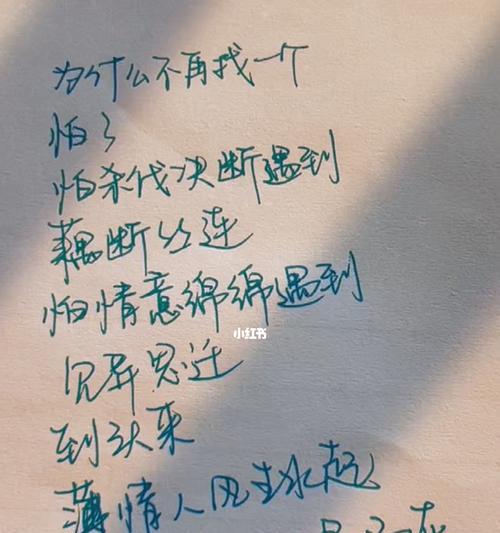 为什么不再找一个
怕了
怕杀伐决断遇到
藕断丝连
怕情意绵绵遇到
小红书
见异思迁
到头来
薄情人风生水起